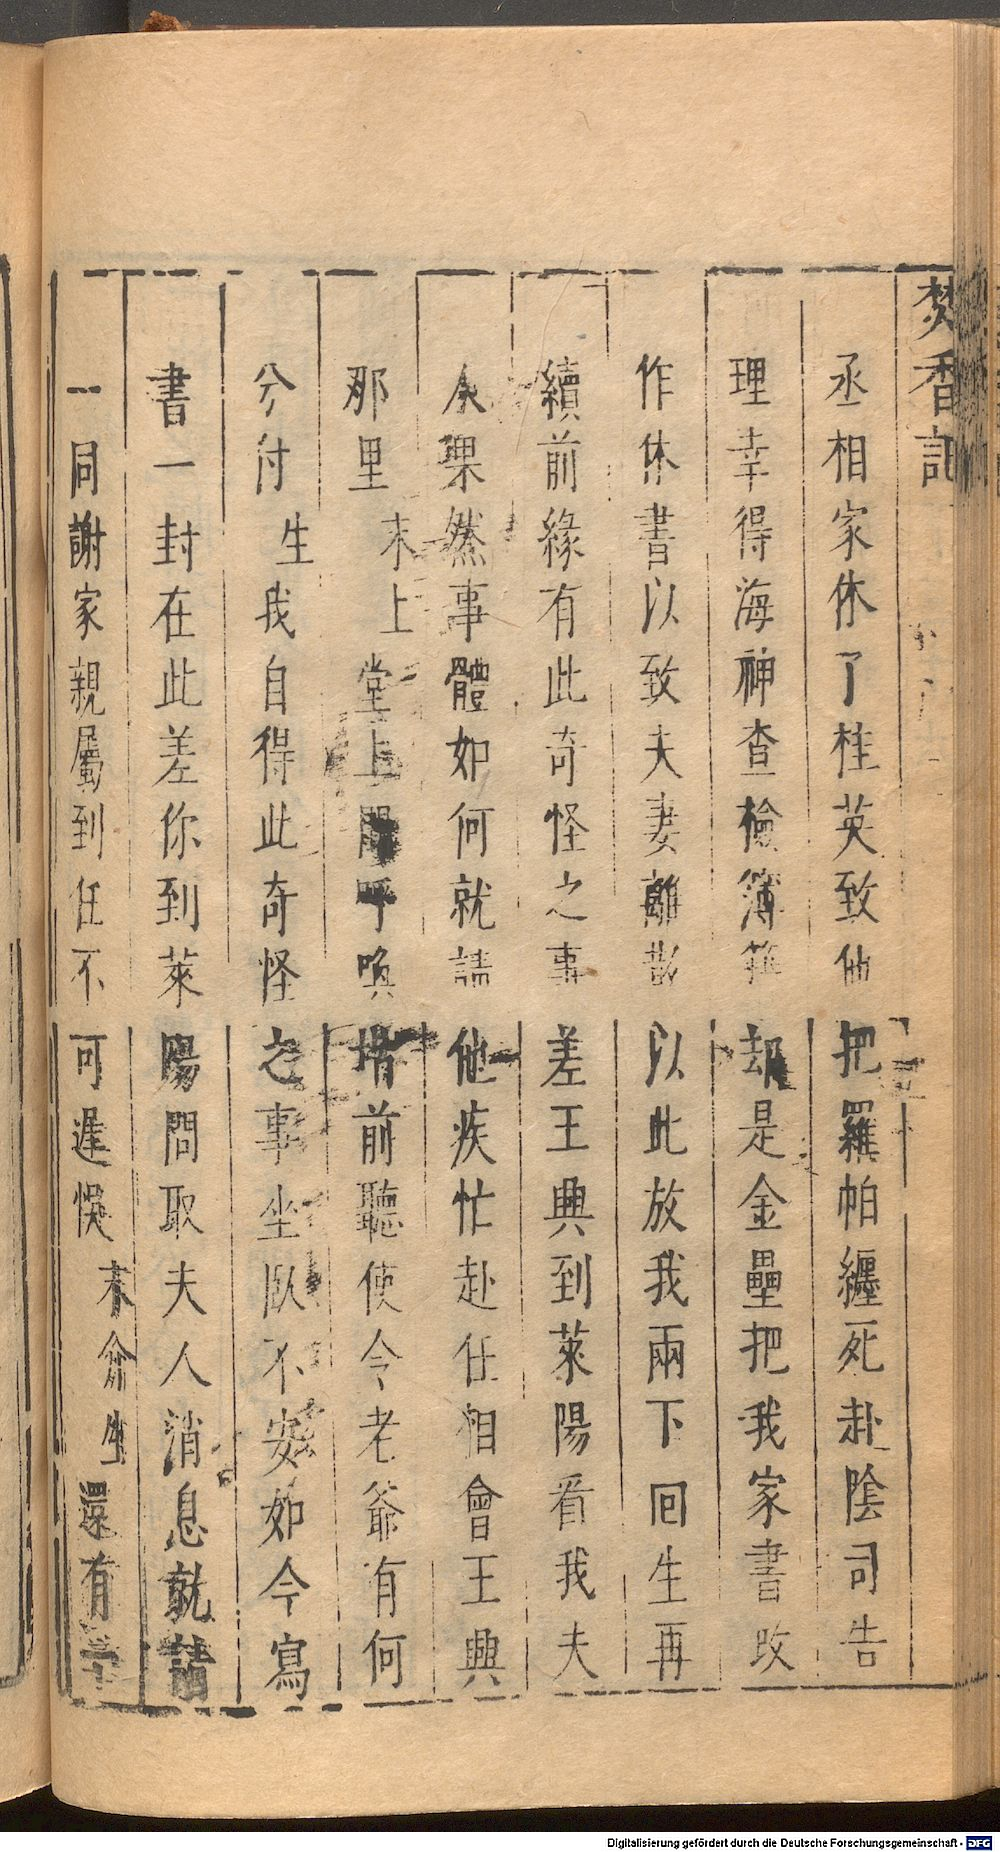 焚香記
丞相家休了桂英致他把羅帕纏死赴陰司告
理幸得海神查檢簿籍却是金壘把我家書改
作休書以致夫妻離散以此放我兩下回生再
續前緣有此奇怪之事差王興到萊陽看我夫
人果然事體如何就請他疾忙赴任相會王興
那里 末上 堂上聞呼喚堦前聽使令老爺有何
分付 生 我自得此奇怪之事坐臥不安如今寫
書一封在此差你到萊陽問取夫人消息就請
一同謝家親屬到任不可遲悞 末介 生 還有
Digitalisierung gefördert durch die Deutsche Forschungsgemeinschaft - DFG